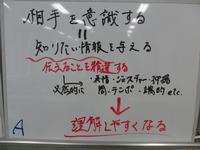 相手を意識する
=
知りたい情報を与える
伝えることを精選する
必然的に
・表情・ジェスチャー・抑揚
間・テンポ・端的 etc.
理解しやすくなる
A